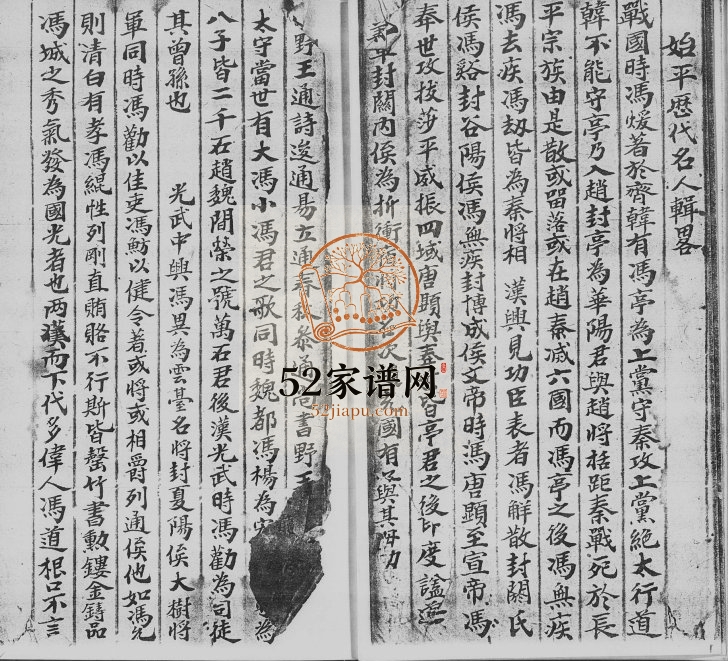 始平歷代名人輯畧
戰國時馮煖著於齊韓有馮亭為上黨守秦攻上黨絕太行道
韓不能守亭乃入趙封亭為華陽君與趙將括距秦戰死於長
平宗族由是散或留落或在趙秦滅六國而馮亭之後馮無疾
馮去疾馮劫皆為秦將相 漢興見功臣表者馮解散封關氏
侯馮谿封谷陽侯馮無疾封博成侯文帝時馮唐顯至宣帝馮
奉世攻拔莎平威振四域唐顯與奉 皆亭君之後
封關內侯為折衝 國有 與其
野王通詩逡通易立通春秋參 尚書野王
太守當世有大馮小馮君之歌同時魏都馮楊為 為
八子皆二千石趙魏間榮之號萬石君後漢光武時馮勸為司徒
其曾孫也 光武中興馮異為雲臺名將封夏陽侯大樹將
軍同時馮勸以佳吏馮魴以健令著或將或相爵列通侯他如馮
則清白有孝馮緄性列剛直賄賂不行斯皆罄竹書勳鏤金鑄品
馮城之秀氣發為國光者也两漢而下代多偉人馮道根口不言
52家谱网
52jiapu.com